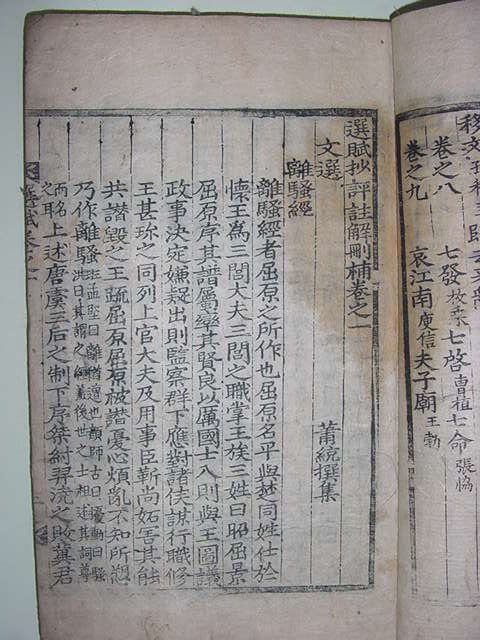 移文
卷之八 七發 枚乘 七啓 曹植 七命 張協
卷之九 哀江南 庾信 夫子廟 王勃
選賦抄評註解刪補卷之一
文選 蕭統撰集
離騷經
離騷經者屈原之所作也屈原名平與楚同姓仕於
懷王為三閭大夫三閭之職掌王族三姓曰昭屈景
屈原序其譜屬率其賢良以厲國士入則與王圖議
政事決定嫌疑出則監察群下應對諸侯謀行職修
王甚珍之同列上官大夫及用事臣靳尚妬害其能
共譖毀之王疏屈原屈原被譖憂心煩亂不知所愬
乃作離騷 孟堅曰離猶遭也顏師古曰擾動曰騷
洪曰其謂之經蓋後世之士相述其詞尊
而名之 上述唐虞三后之制下序桀紂羿澆之敗冀君